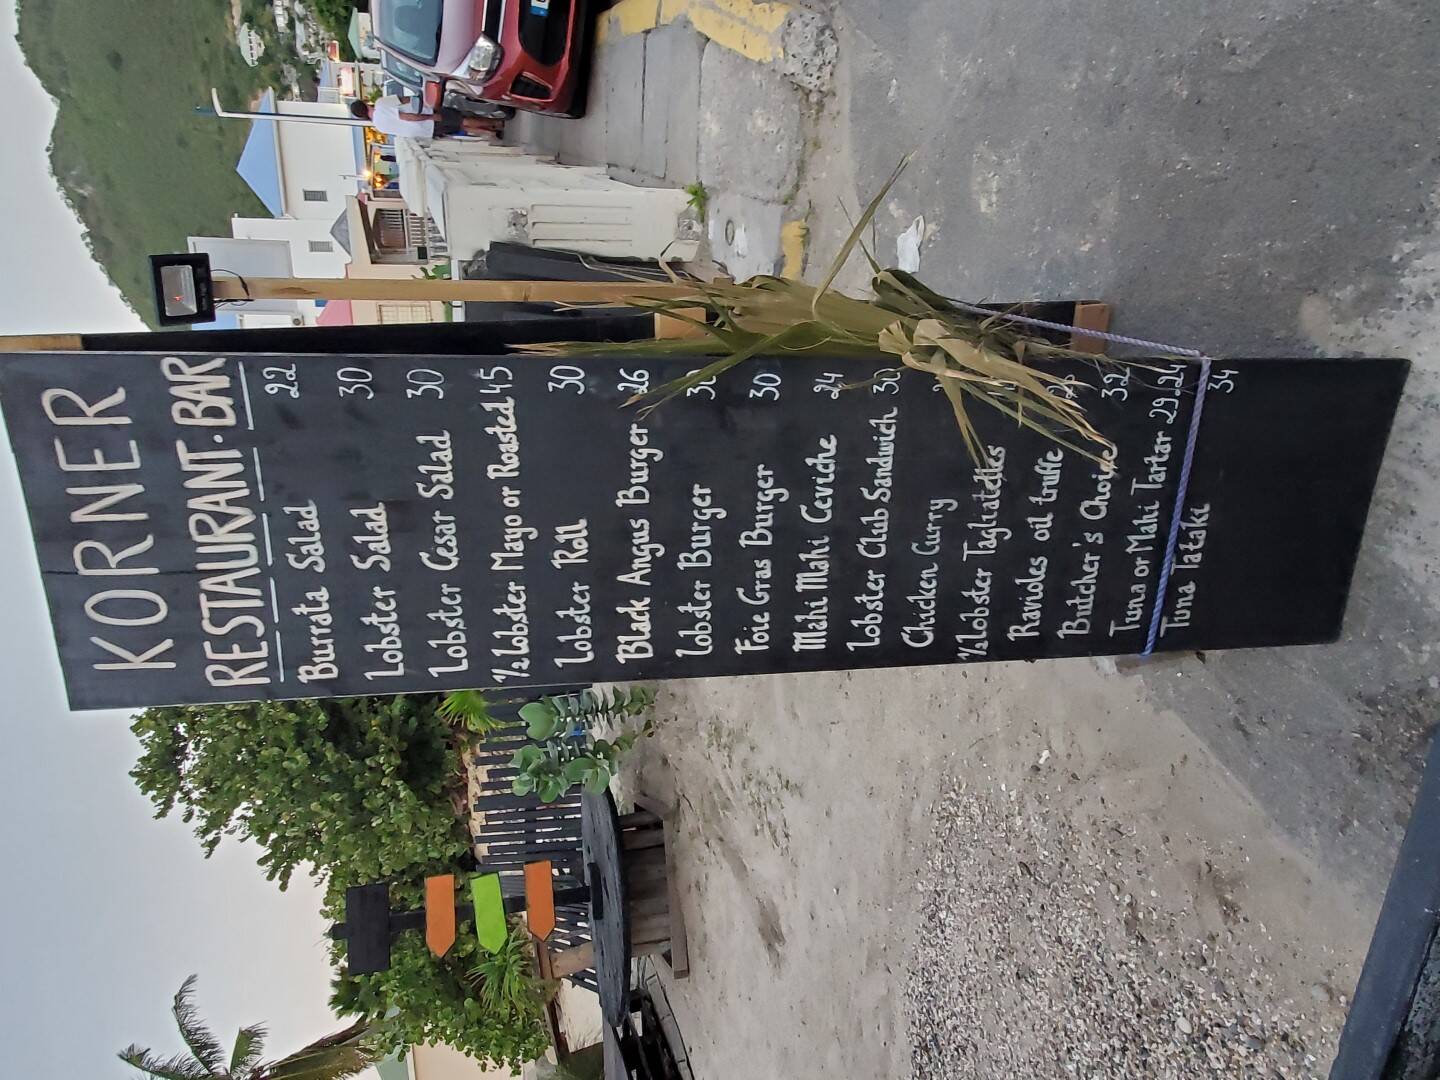 KORNER
RESTAURANT · BAR
Burrata Salad 22
Lobster Salad 30
Lobster Cesar Salad 30
1/2 Lobster Mayo or Roasted 45
Lobster Roll 30
Black Angus Burger 26
Lobster Burger
Foie Gras Burger 30
Mahi Mahi Ceviche 24
Lobster Club Sandwich 30
Chicken Curry
1/2 Lobster Tagliatelles
Ravioles oil truffe
Butcher's Choice 32
Tuna or Mahi Tartar 29.24
Tuna Tataki 34